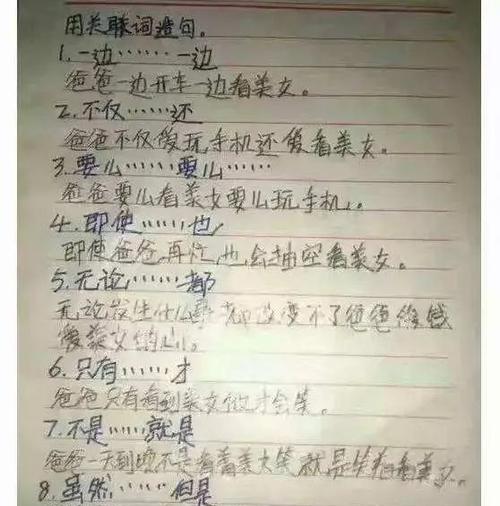 用关联词造句。
1.一边……一边
爸爸一边开车一边看美女。
2.不仅……还
爸爸不仅爱玩手机还爱看美女。
3.要么……要么……
爸爸要么看美女要么玩手机。
4.即使……也
即使爸爸再忙,也会抽空看美女。
5.无论……都
无论发生什么事都改变不了爸爸
爱美女的心。
6.只有……才
爸爸只有看到美女他才会笑。
7.不是……就是
爸爸一天到晚不是看着美女笑就是笑着看美女。
8.虽然……但是